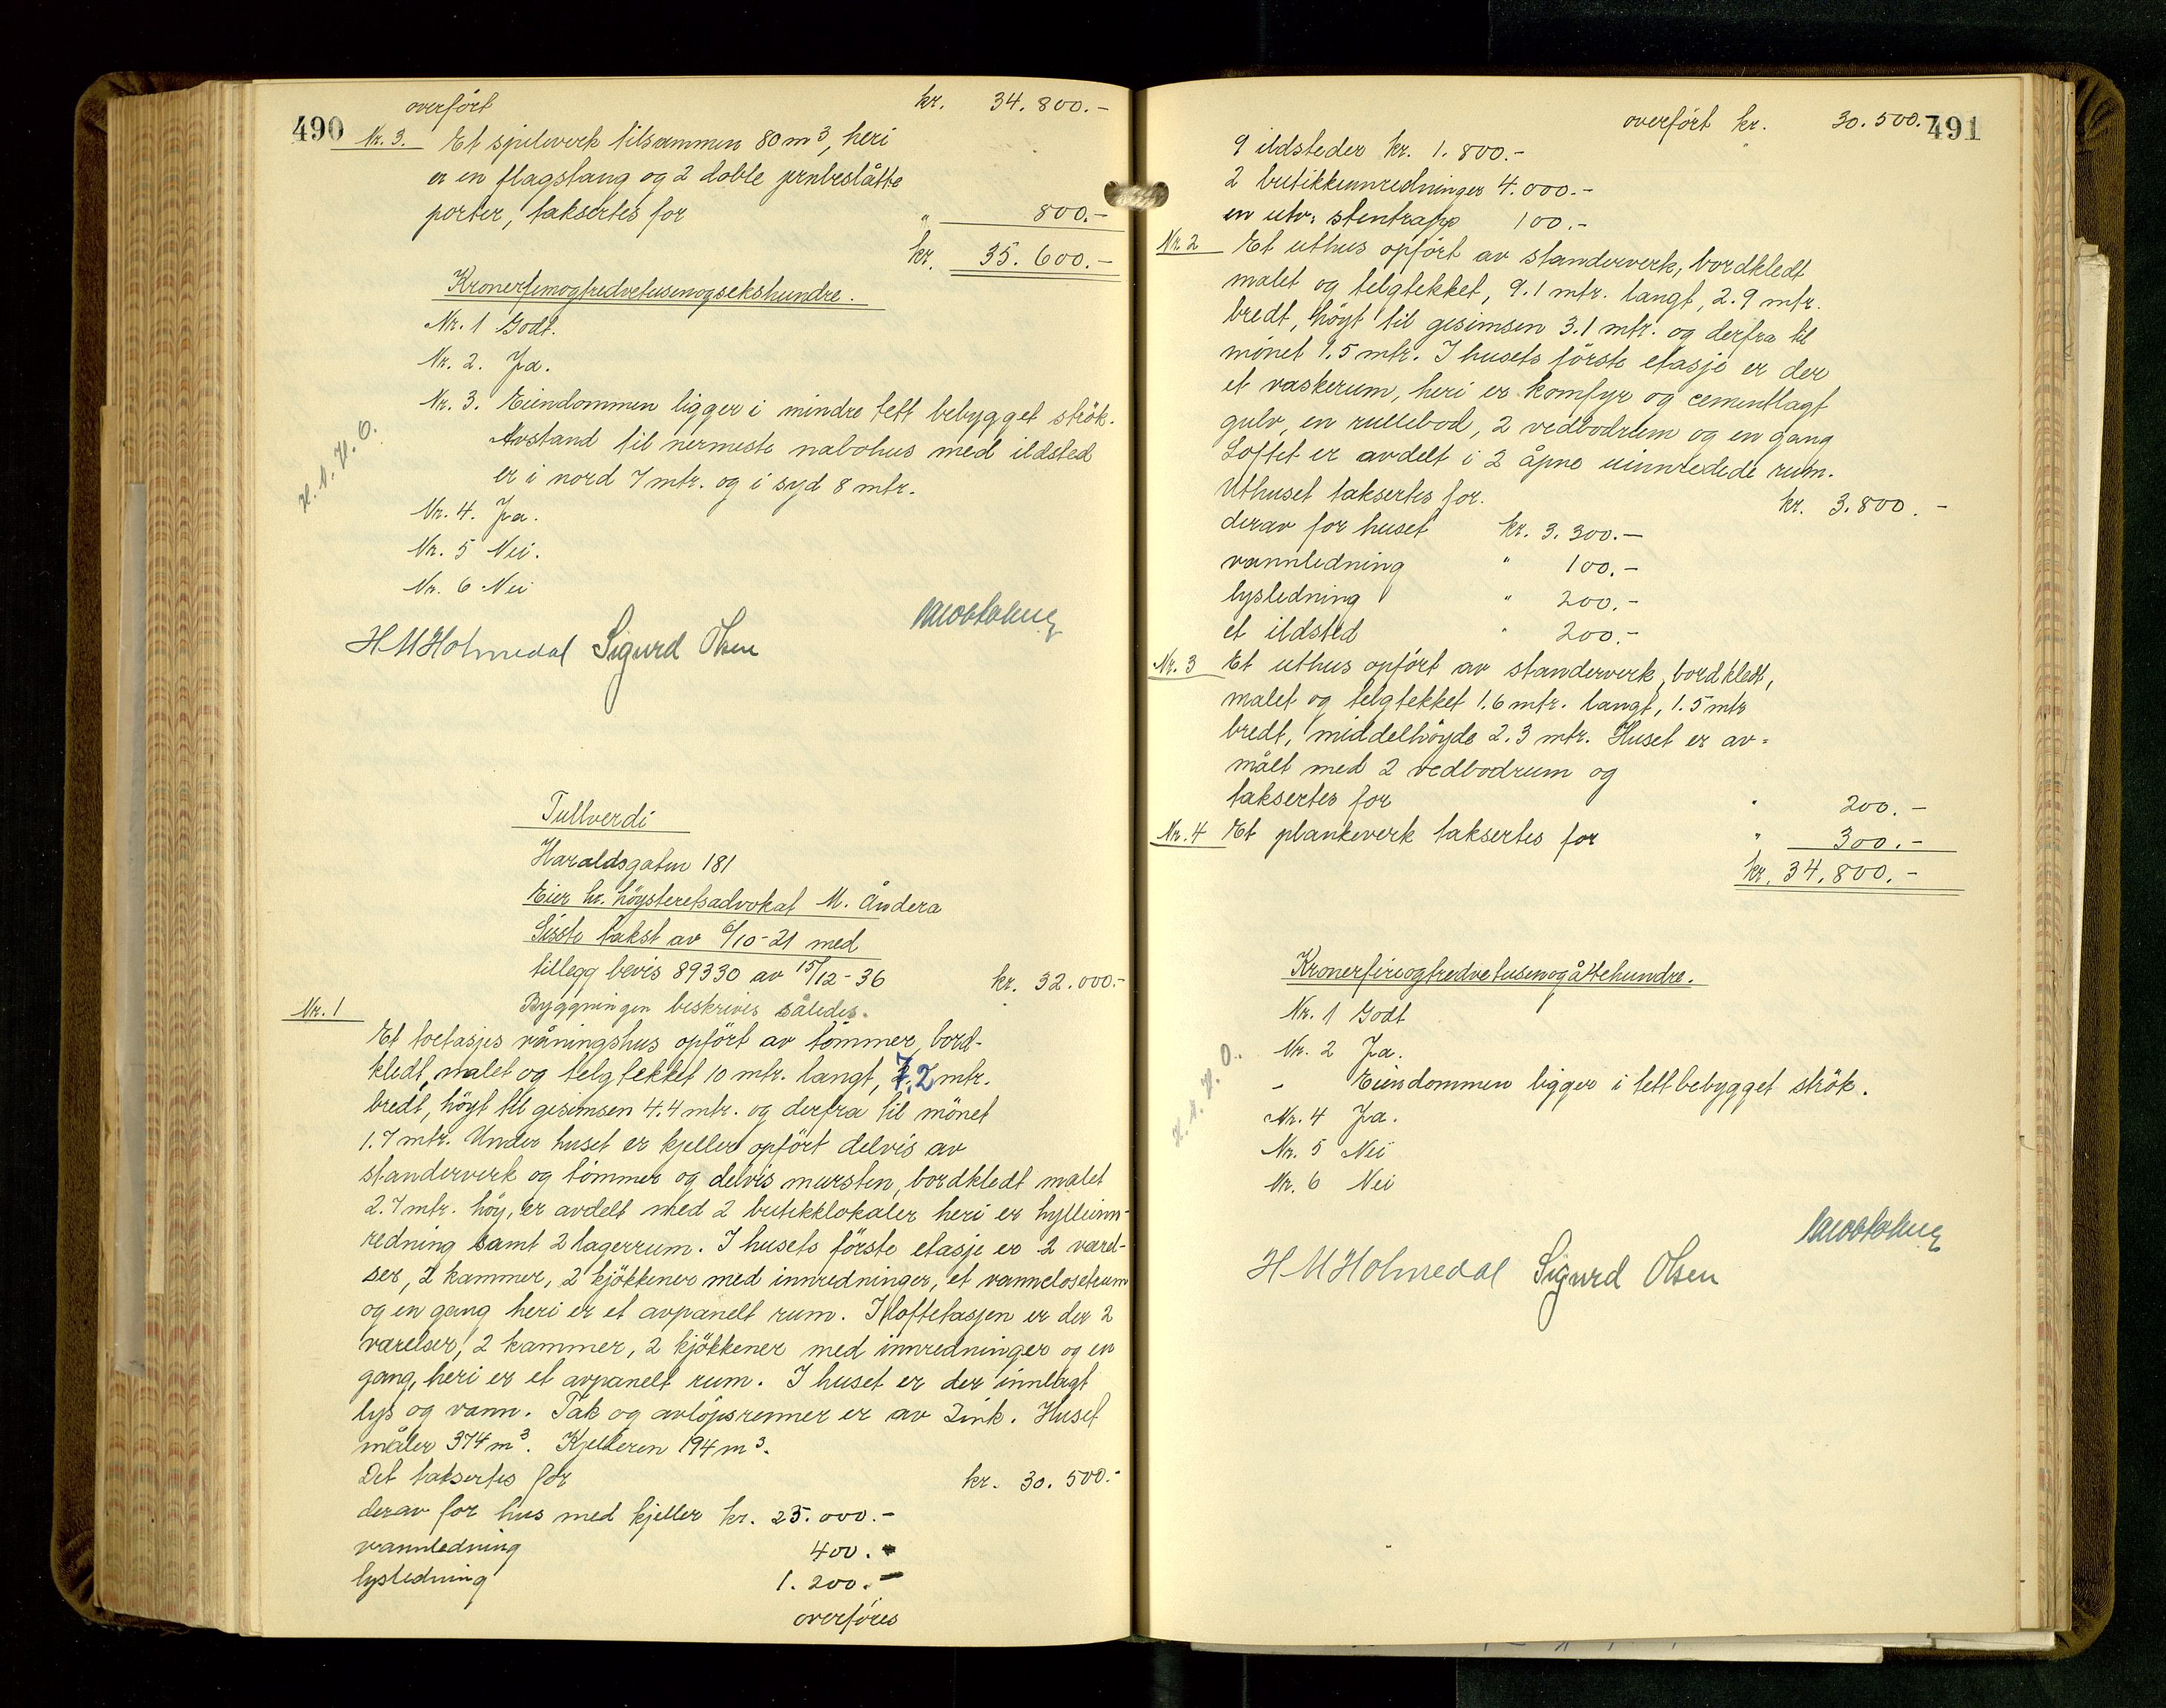 490
overført kr. 34.800.-
Nr. 3. Et spilewerk tilsammen 80 m³, heri
er en flagstang og 2 doble jernbeslåtte
porter, taksertes for " 800.-
kr. 35.600.-
Kronerfemogtredvetusenogsekshundre.
Nr. 1 Godt.
Nr. 2. Ja.
Nr. 3. Eiendommen ligger i mindre tett bebygget strök.
Avstand til nermeste nabohus med ildsted
er i nord 7 mtr. og i syd 8 mtr.
Nr. 4. Ja.
Nr. 5 Nei.
Nr. 6 Nei
H M Holmedal Sigurd Olsen
Tullverdi
Haraldsgaten 181
Eier hr. höysteretsadvokat M. Åndera
Sisste takst av 6/10-21 med
tillegg bevis 89330 av 15/12-36 kr. 32.000.-
Byggningen beskrives således.
Nr. 1
Et toetasjes våningshus opfört av tömmer, bord-
kledt, malet og telgtekket 10 mtr. langt, 7,2 mtr.
bredt, höyt til gesimsen 4.4 mtr. og derfra til mönet
1.7 mtr. Under huset er kjeller opfört delvis av
standerverk og tömmer og delvis mursten, bordkledt malet
2.7 mtr. höy, er avdelt med 2 butikklokaler heri er hylleinn-
redning samt 2 lagerrum. I husets förste etasje er 2 værel-
ser, 2 kammer, 2 kjökkener med innredninger, et vannclosetrum
og en gang heri er et avpanelt rum. I loftetasjen er der 2
værelser, 2 kammer, 2 kjökkener med innredninger og en
gang, heri er et avpanelt rum. I huset er der innlagt
lys og vann. Tak og avlöpsrenner er av Zink. Huset
måler 374 m³. Kjelleren 194 m³.
Det taksertes for kr. 30.500.-
derav for hus med kjeller kr. 23.000.-
vannledning 400.-
lysledning 1.200.-
overföres
491
overført kr. 30.500.-
9 ildsteder kr. 1.800.-
2 butikkinnredninger 4.000.-
en utv. stentrapp 100.-
Nr. 2 Et uthus opfört av standerverk, bordkledt
malet og telgtekket, 9.1 mtr. langt, 2.9 mtr.
bredt, höyt til gesimsen 3.1 mtr. og derfra til
mönet 1.5 mtr. I husets förste etasje er der
et vaskerum, heri er komfyr og cementlagt
gulv, en rullebod, 2 vedbodrum og en gang
Loftet er avdelt i 2 åpne uinnredede rum.
Uthuset taksertes for. kr. 3.800.-
derav for huset kr. 3.300.-
vannledning " 100.-
lysledning " 200.-
et ildsted " 200.-
Nr. 3 Et uthus opfört av standerverk, bordkledt,
malet og telgtekket 1.6 mtr. langt, 1.5 mtr
bredt, middelhöyde 2.3 mtr. Huset er av=
målt med 2 vedbodrum og
taksertes for " 200.-
Nr. 4 Et plankeverk taksertes for " 300.-
kr. 34.800.-
Kronerfireogtredvetusenogåttehundre.
Nr. 1 Godt
Nr. 2 Ja.
- Eiendommen ligger i tett bebygget strök.
Nr. 4 Ja.
Nr. 5 Nei
Nr. 6 Nei
H M Holmedal Sigurd Olsen